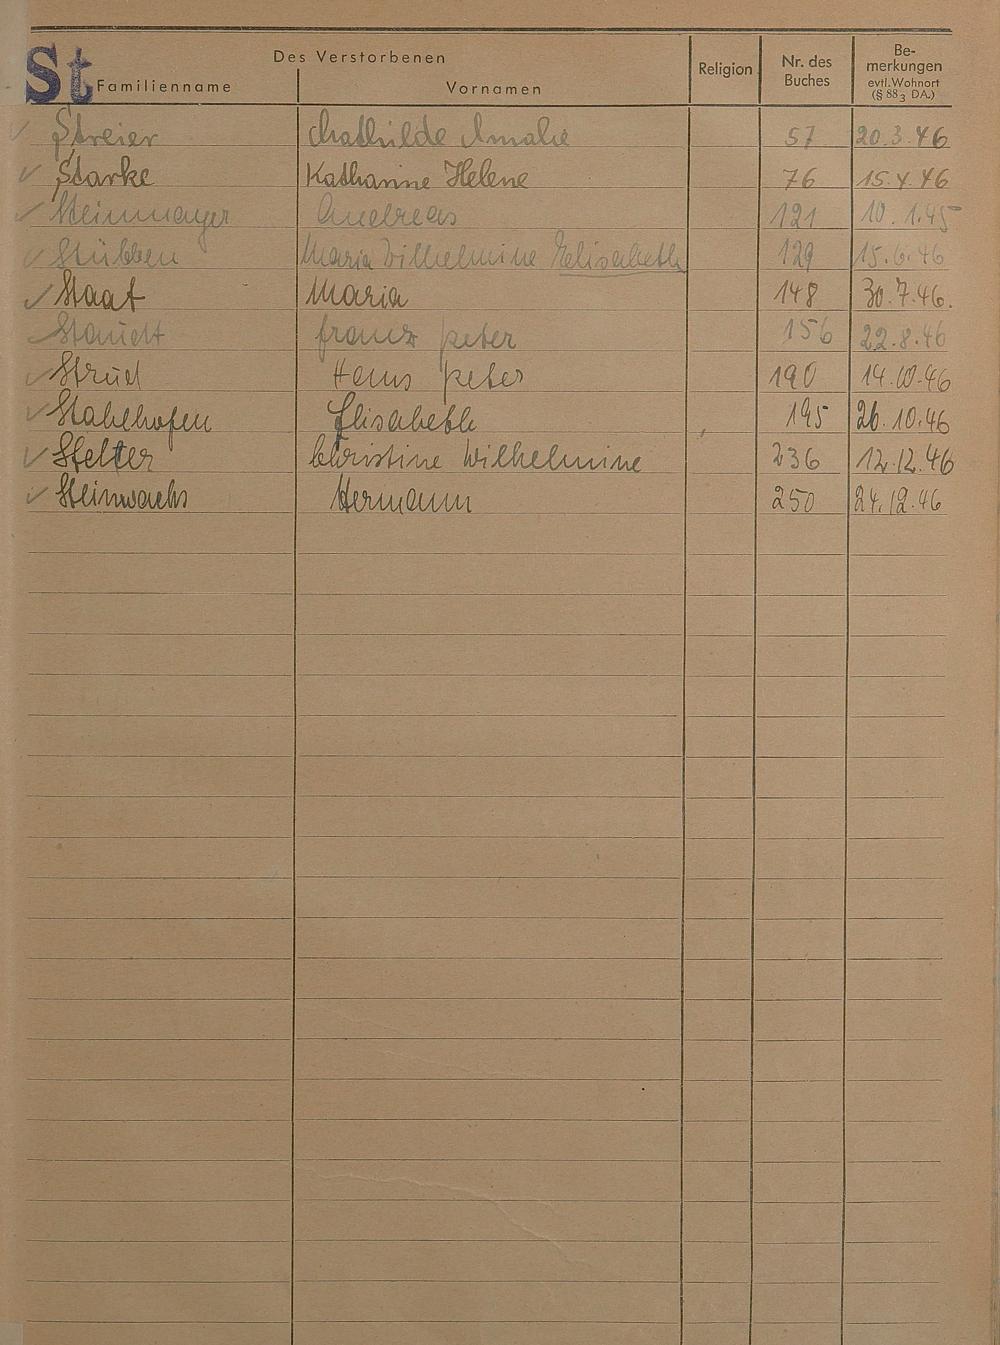 St
Des Verstorbenen
Familienname Vornamen Religion Nr. des Buches Be-merkungen evtl. Wohnort (§ 88₃ DA.)
Streier Mathilde Amalie 57 20.3.46
Starke Katharine Helene 76 15.4.46
Steinmayer Andreas 121 10.1.45
Stübben Maria Wilhelmine Elisabeth 129 15.6.46
Staat Maria 148 30.7.46.
Staudt Franz Peter 156 22.8.46
Hans Peter 190 14.10.46
Stahlhofen Elisabeth 195 26.10.46
Stelter Christine Wilhelmine 236 12.12.46
Steinwachs Hermann 250 24.12.46